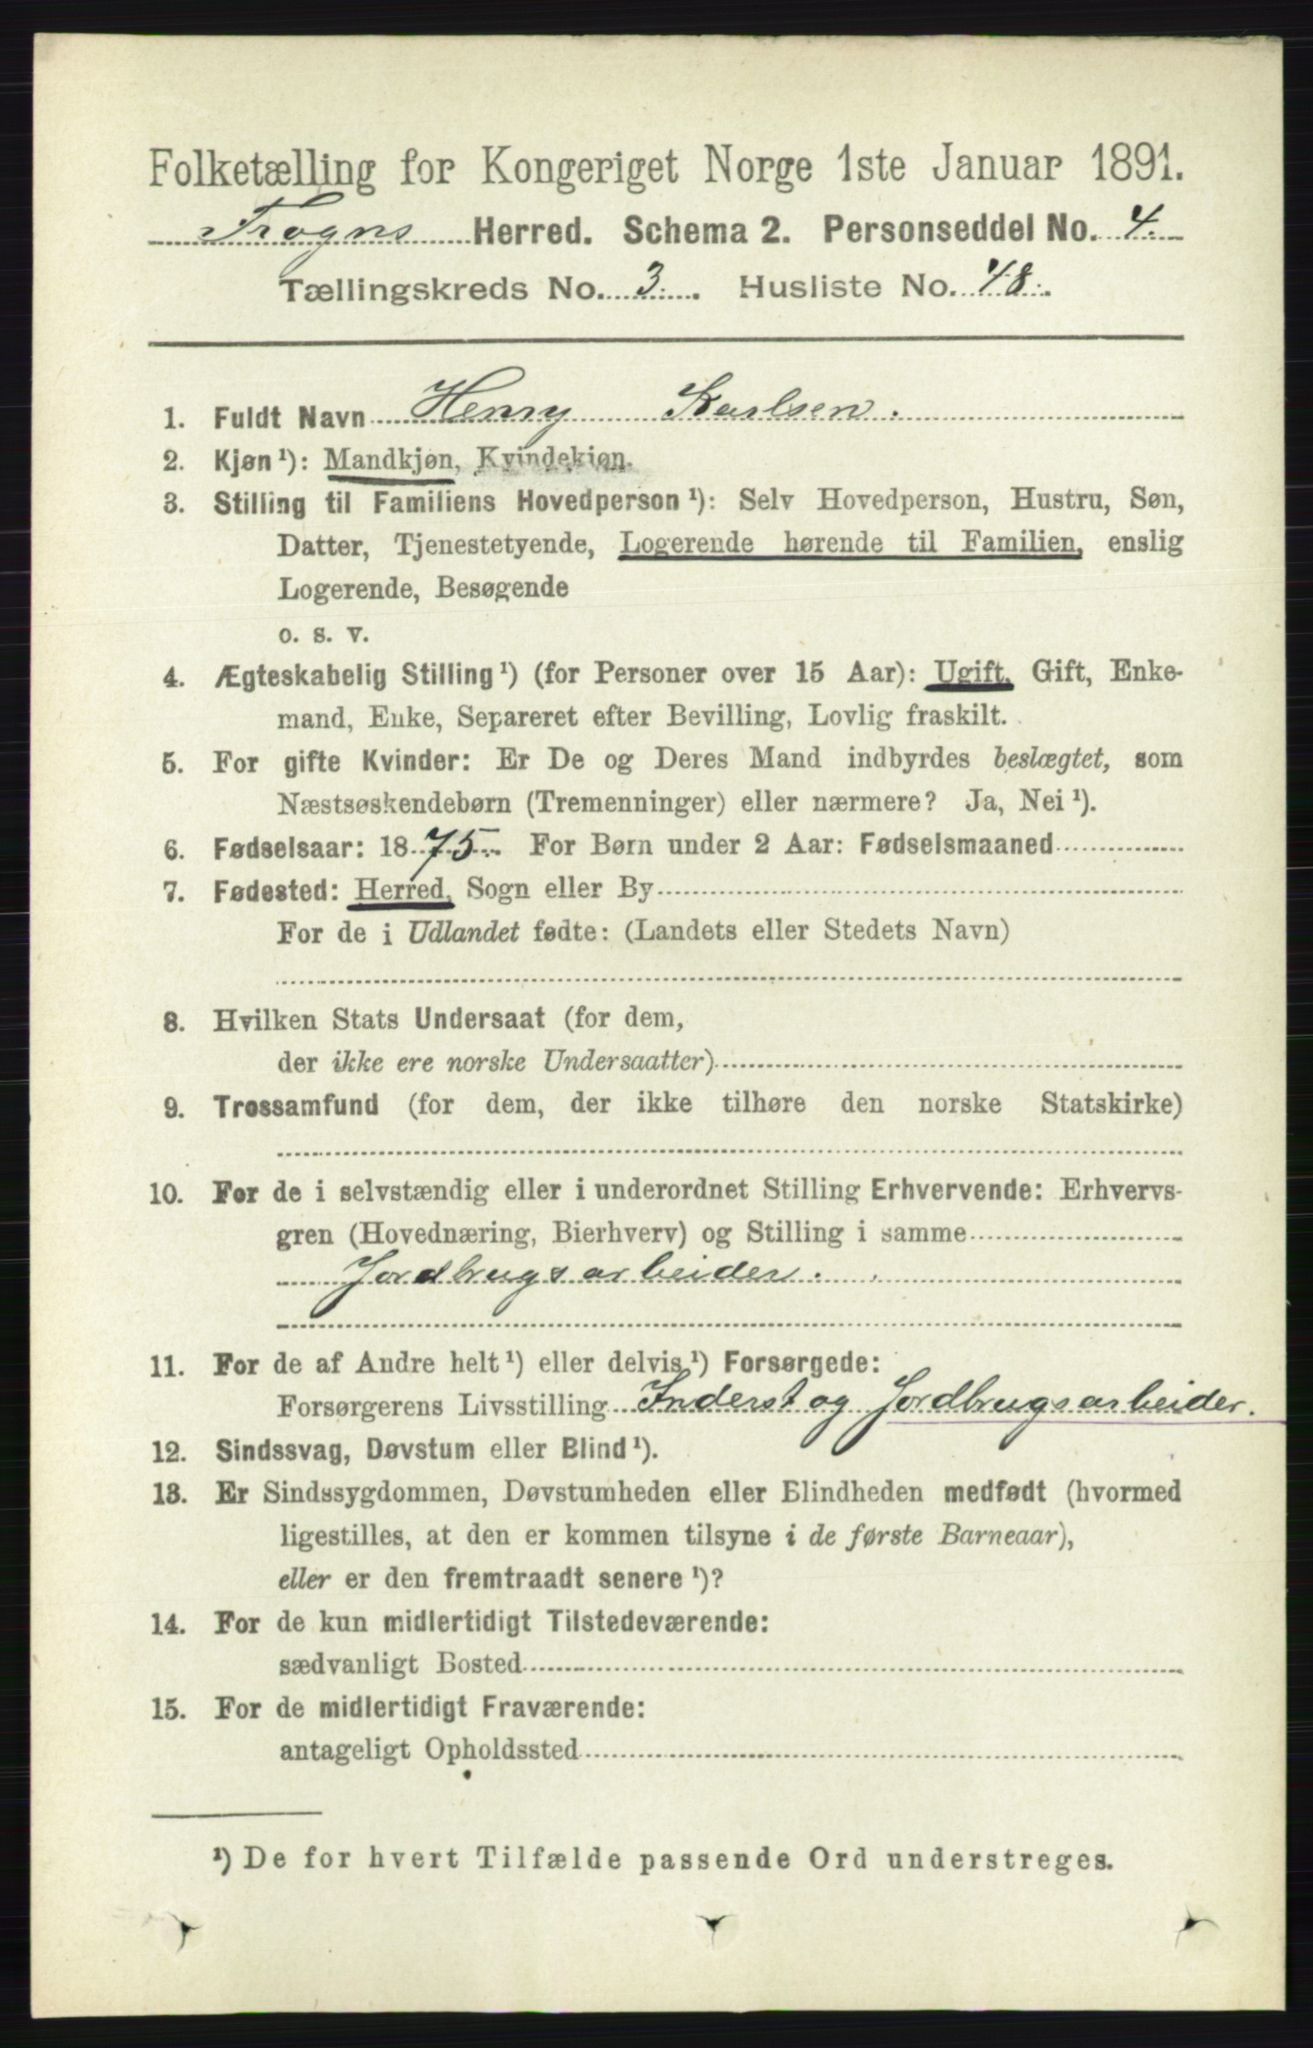 Folketælling for Kongeriget Norge 1ste Januar 1891.
Frogns Herred. Schema 2. Personseddel No. 4.
Tællingskreds No. 3. Husliste No. 48.
1. Fuldt Navn Henry Karlsen.
2. Kjøn¹): Mandkjøn, Kvindekjøn.
3. Stilling til Familiens Hovedperson¹): Selv Hovedperson, Hustru, Søn,
Datter, Tjenestetyende, Logerende hørende til Familien, enslig
Logerende, Besøgende
o. s. v.
4. Ægteskabelig Stilling¹) (for Personer over 15 Aar): Ugift, Gift, Enke-
mand, Enke, Separeret efter Bevilling, Lovlig fraskilt.
5. For gifte Kvinder: Er De og Deres Mand indbyrdes beslægtet, som
Næstsøskendebørn (Tremenninger) eller nærmere? Ja, Nei¹).
6. Fødselsaar: 1875. For Børn under 2 Aar: Fødselsmaaned
7. Fødested: Herred, Sogn eller By
For de i Udlandet fødte: (Landets eller Stedets Navn)
8. Hvilken Stats Undersaat (for dem,
der ikke ere norske Undersaatter)
9. Trossamfund (for dem, der ikke tilhøre den norske Statskirke)
10. For de i selvstændig eller i underordnet Stilling Erhvervende: Erhvervs-
gren (Hovednæring, Bierhverv) og Stilling i samme
Jordbrugsarbeider.
11. For de af Andre helt¹) eller delvis¹) Forsørgede:
Forsørgerens Livsstilling Inderst og Jordbrugsarbeider.
12. Sindssvag, Døvstum eller Blind¹).
13. Er Sindssygdommen, Døvstumheden eller Blindheden medfødt (hvormed
ligestilles, at den er kommen tilsyne i de første Barneaar),
eller er den fremtraadt senere¹)?
14. For de kun midlertidigt Tilstedeværende:
sædvanligt Bosted
15. For de midlertidigt Fraværende:
antageligt Opholdssted
¹) De for hvert Tilfælde passende Ord understreges.